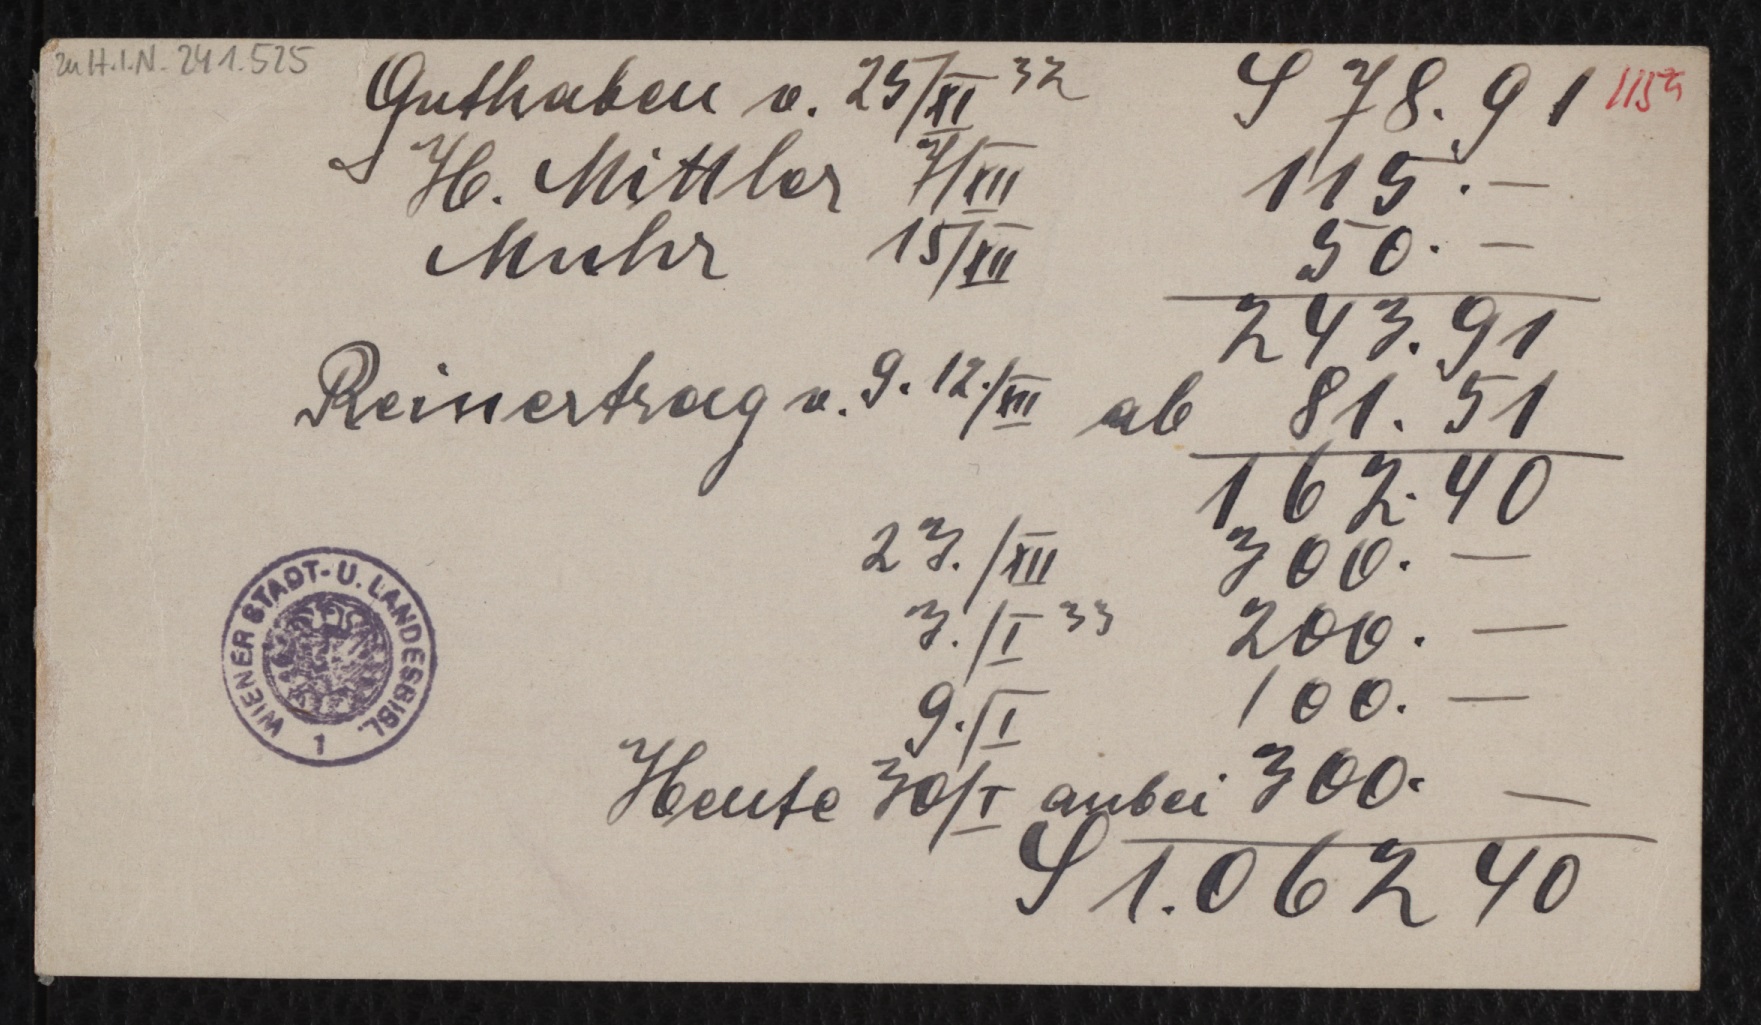 zu H.I.N. 241.525
Guthaben v. 25/XI 32 S 78.91
H. Mittler 7/XII 115.—
Muhr 15/XII 50.—
243.91
Reinertrag v. 9. 12./XII ab 81.51
162.40
23./XII 300.—
3./I 33 200.—
9./I 100.—
Heute 30/I anbei 300.—
S 1.062 40
WIENER STADT- U. LANDESBIBL.
1